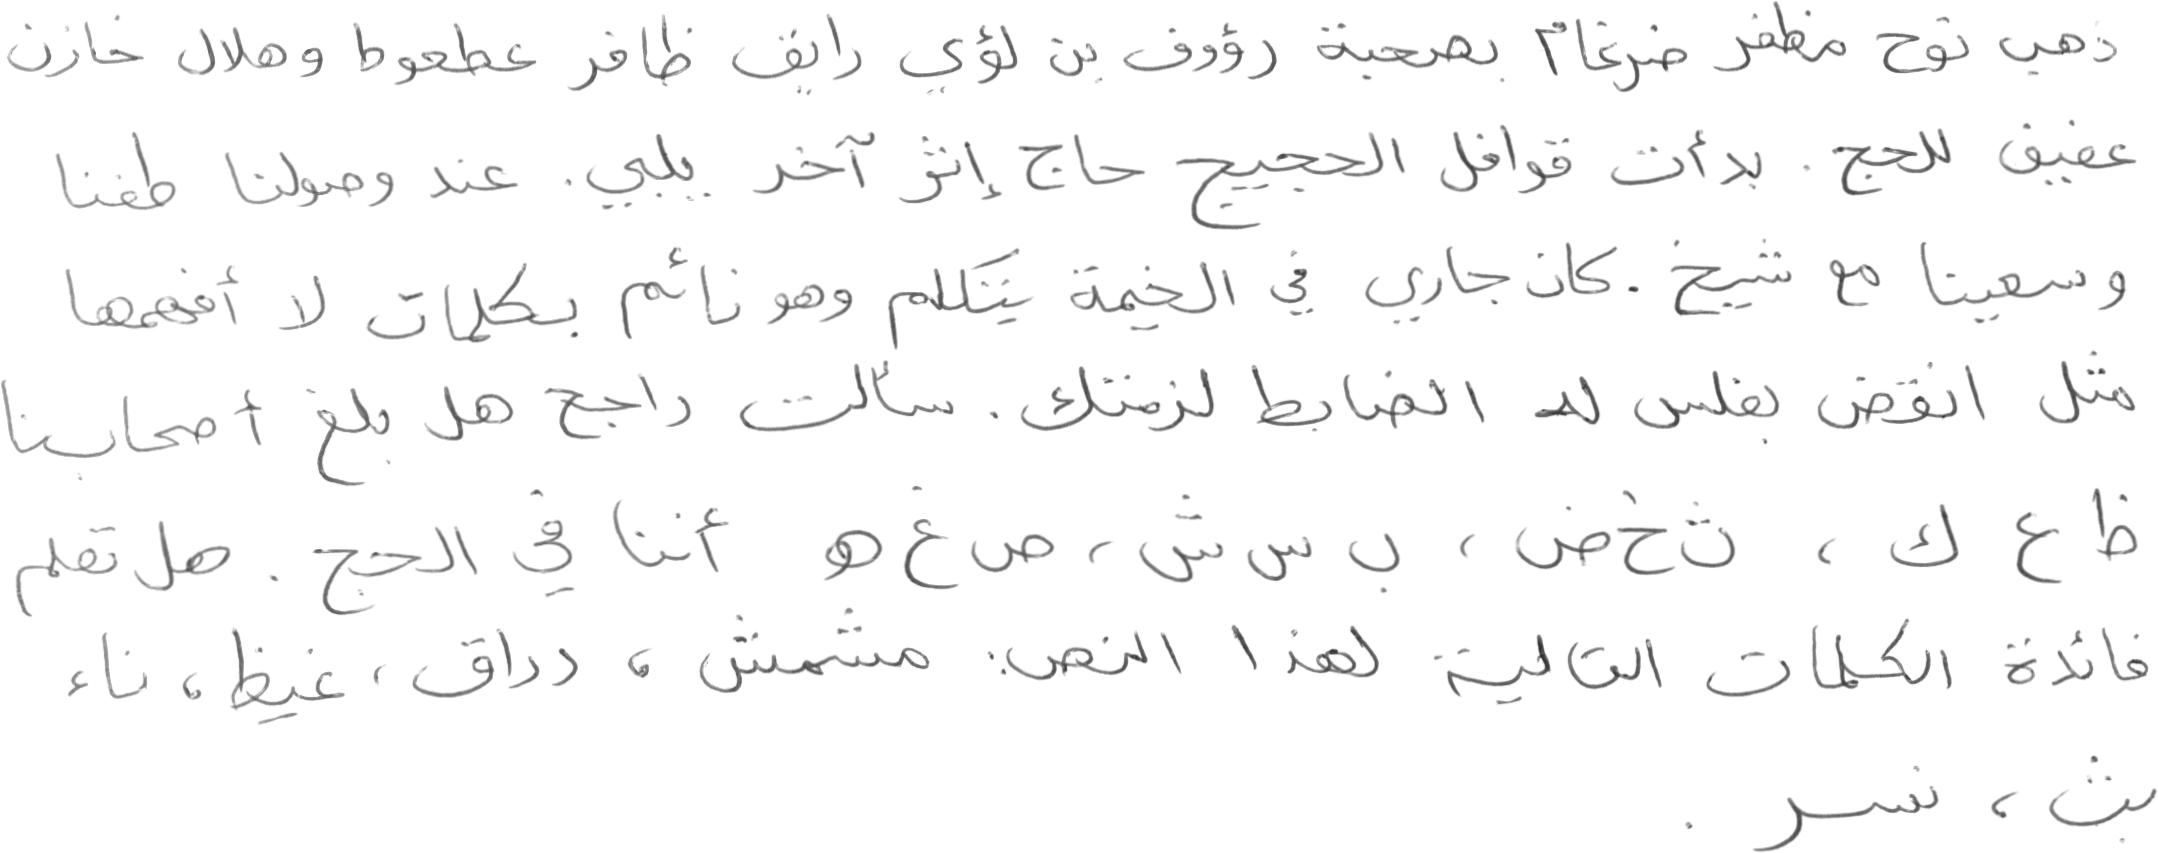 ذهب نوح مظفر ضرغام بصحبة رؤوف بن لؤي رايق ظافر عطعوط وهلال خازن
عفيف للحج. بدأت قوافل الحجيج حاج إثر آخر يلبي. عند وصولنا طفنا
وسعينا مع شيخ. كان جاري في الخيمة يتكلم وهو نائم بكلمات لا أفهمها
مثل انقض بفلس له الضابط لزمتك. سألت راجح هل بلغ أصحابنا
ظ ع ك ، ث خ ض ، ب س ش ، ص غ هو أننا في الحج. هل تعلم
فائدة الكلمات التالية لهذا النص: مشمش ، دراق ، غيظ ، ناء
بث ، نسر .